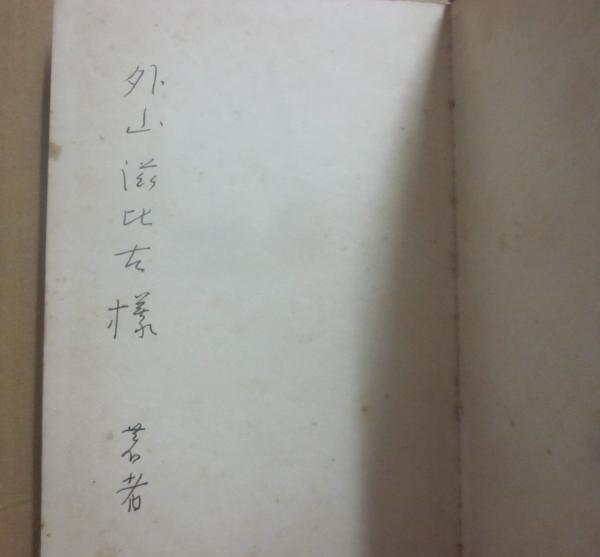 外山滋比古様
著者